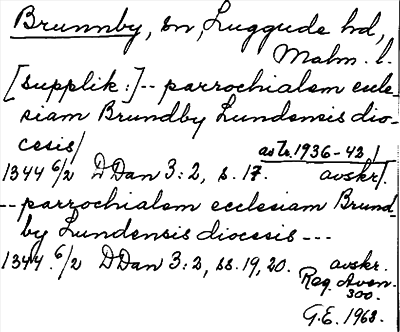 Brunnby, sn, Luggude hd,
Malm. l.
[supplik:]-- parrochialem eccle-
siam Brundby Lundensis dio-
cesis/
1344 6/2 DDan 3:2, s. 17. avskr/.
-- parrochialem ecclesiam Brund-
by Lundensis diocesis ---
1344. 6/2 DDan 3:2, ss. 19, 20. avskr.
Reg. Aven.
300.
G.E. 1963.